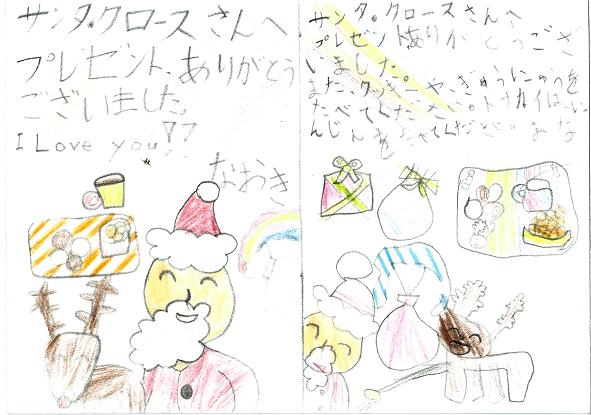 サンタ・クロースさんへ
プレゼント、ありがとう
ございました。
I Love you!!
なおき
サンタ・クロースさんへ
プレゼントありがとうござ
いました。
また、クッキーやぎゅうにゅうを
たべてください。トナカイは、に
んじんをたべてください。まな